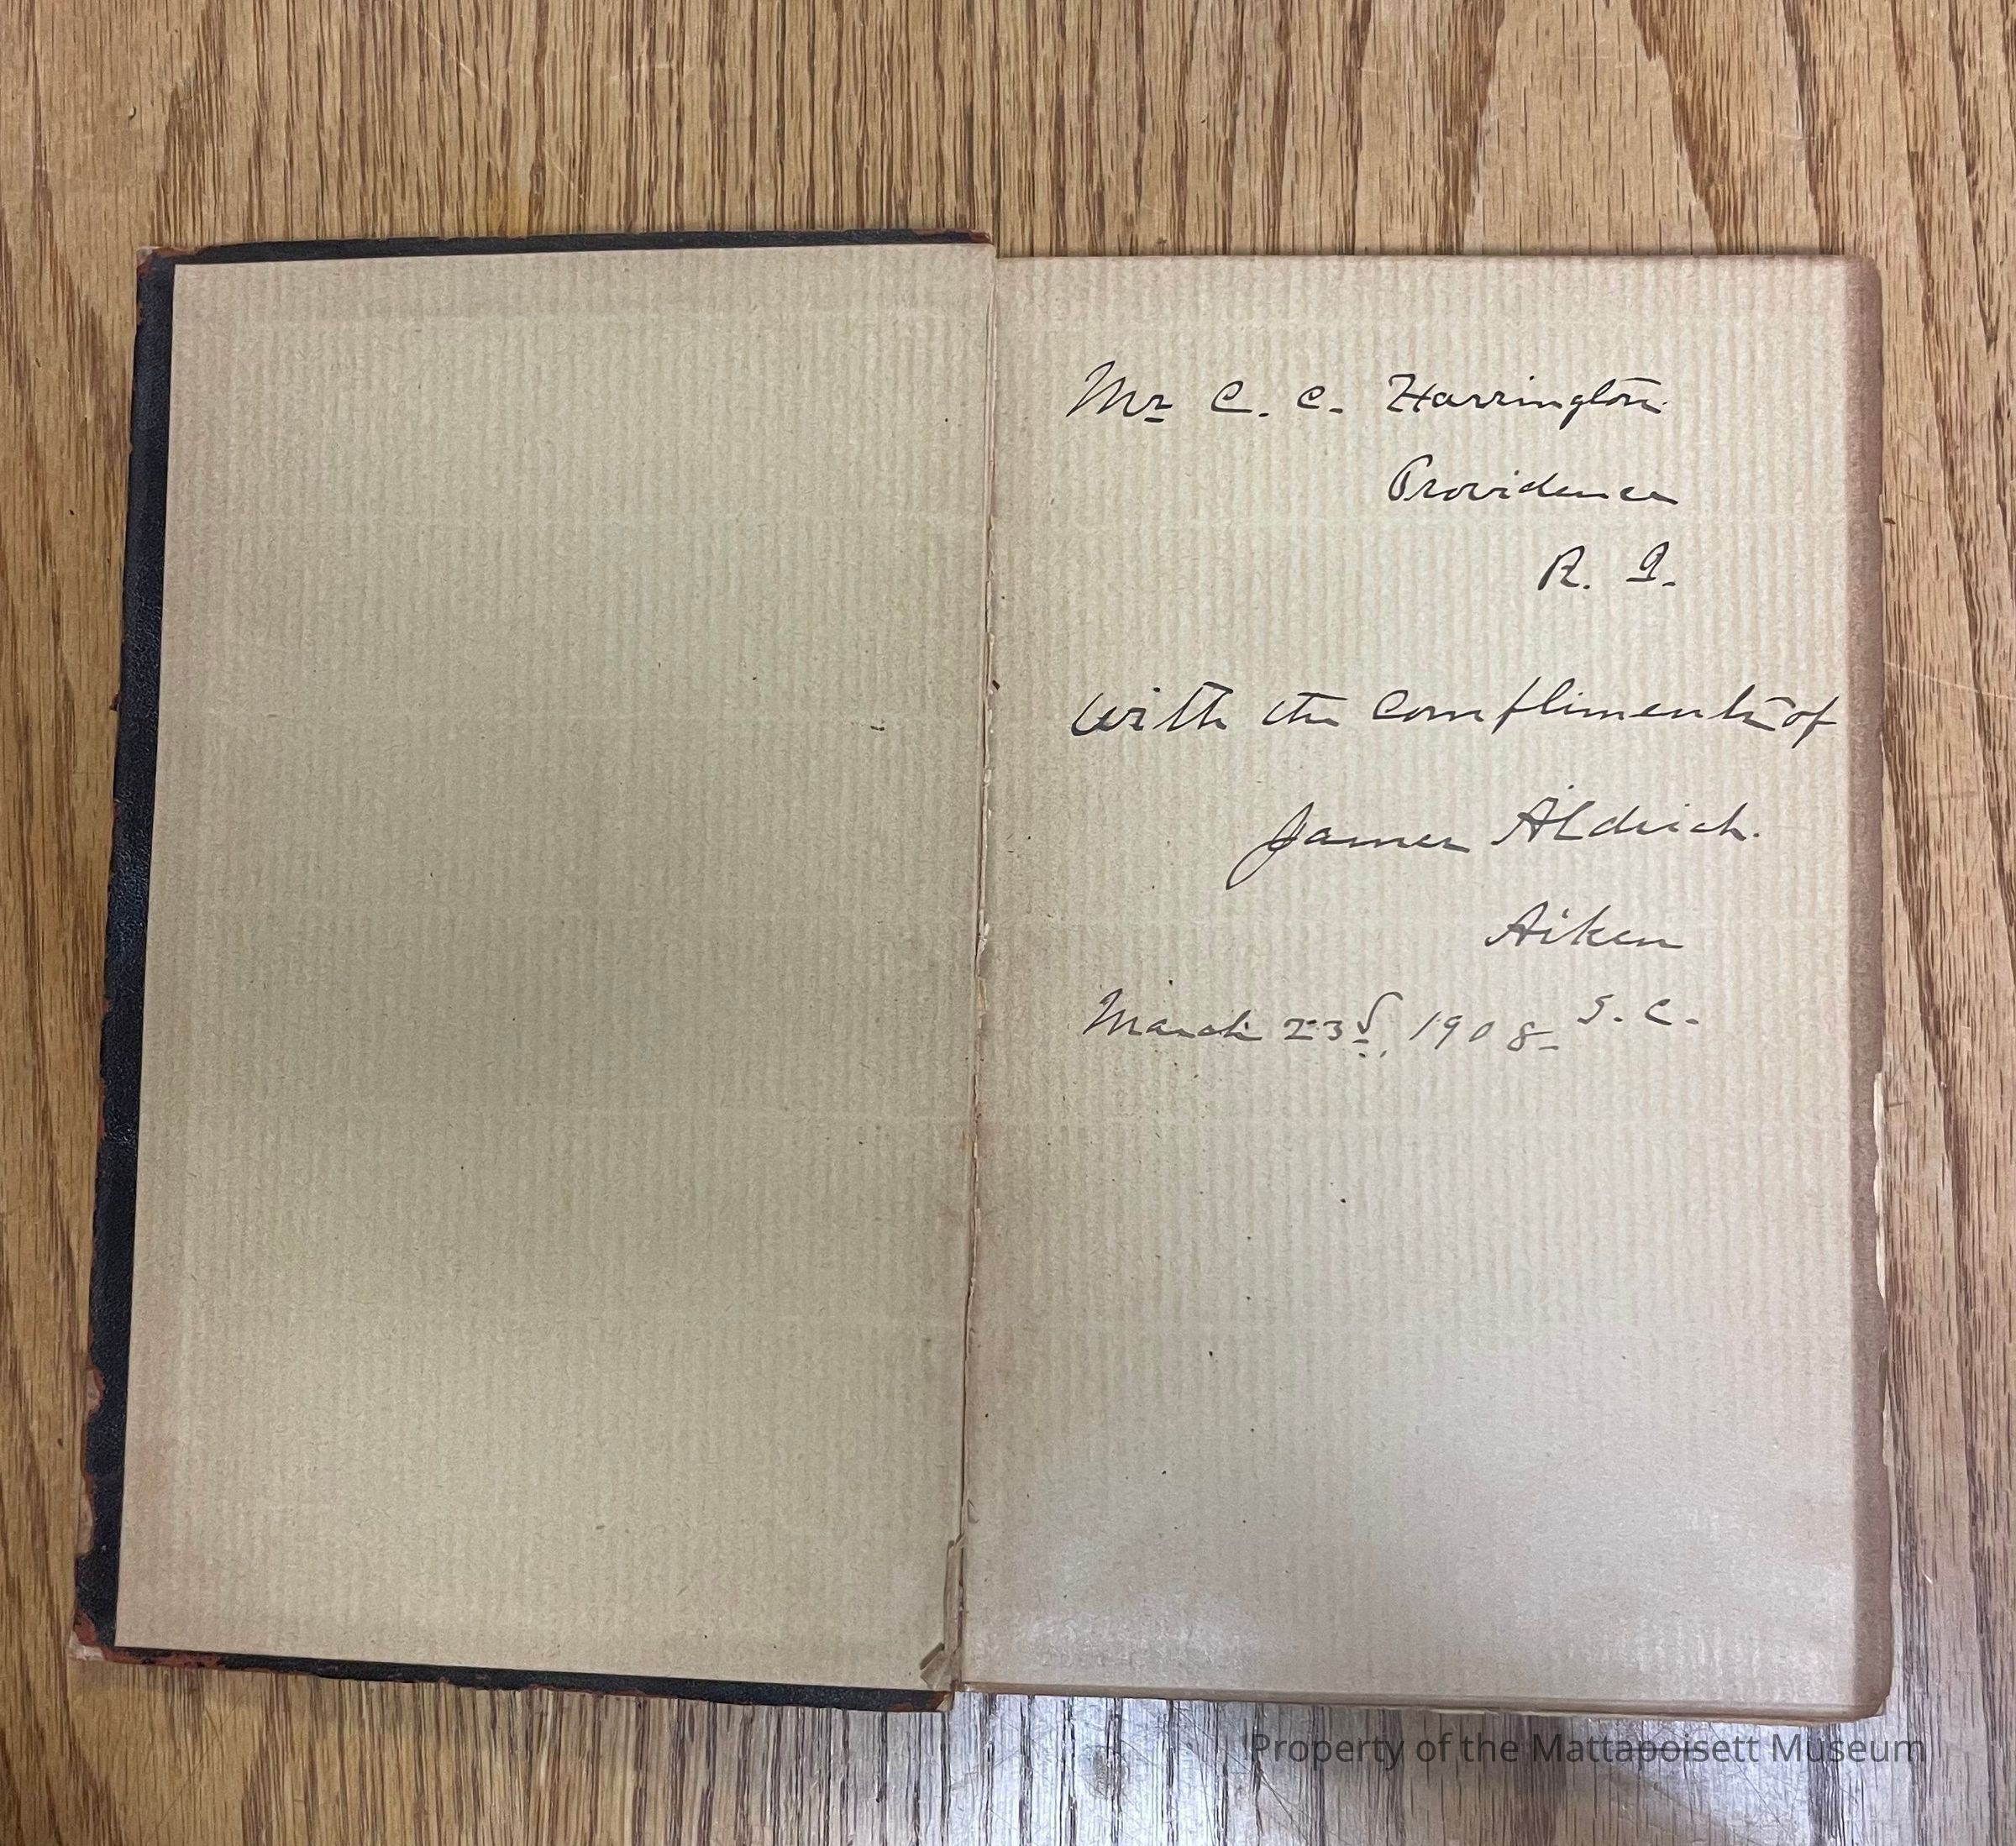 Mr C. C. Harrington
Providence
R. I.
with the compliments of
James Aldrich.
Aiken
S. C.
March 23d, 1908
Property of the Mattapoisett Museum